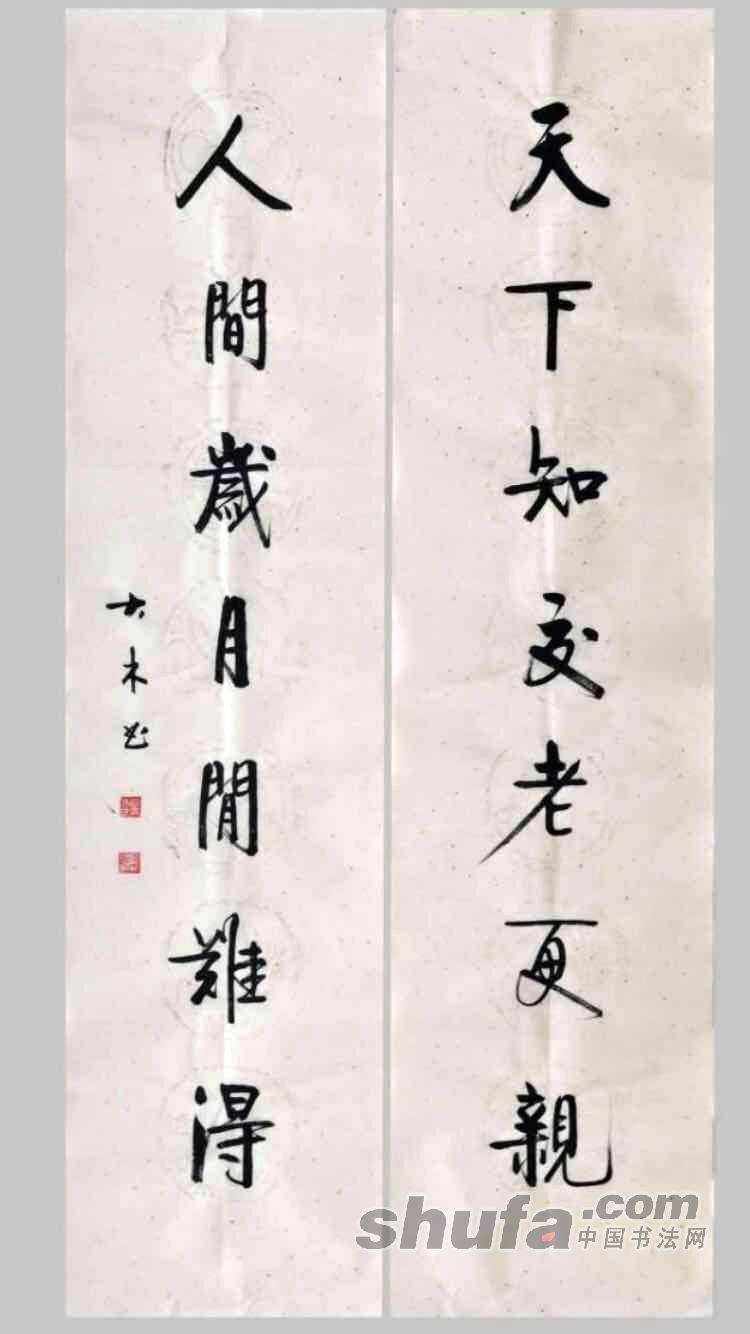 天下知交老更親
人間歲月閒難得
大木书
shufa.com
中国书法网